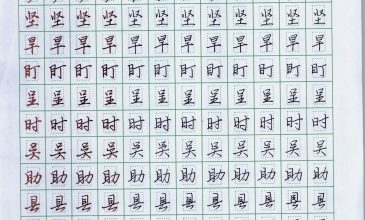 坚 坚 坚 坚 坚 坚 坚 坚 坚 坚 坚
旱 旱 旱 旱 旱 旱 旱 旱 旱 旱 旱
盯 盯 盯 盯 盯 盯 盯 盯 盯 盯 盯
呈 呈 呈 呈 呈 呈 呈 呈 呈 呈 呈
时 时 时 时 时 时 时 时 时 时 时
吴 吴 吴 吴 吴 吴 吴 吴 吴 吴 吴
助 助 助 助 助 助 助 助 助 助 助
县 县 县 县 县 县 县 县 县 县 县